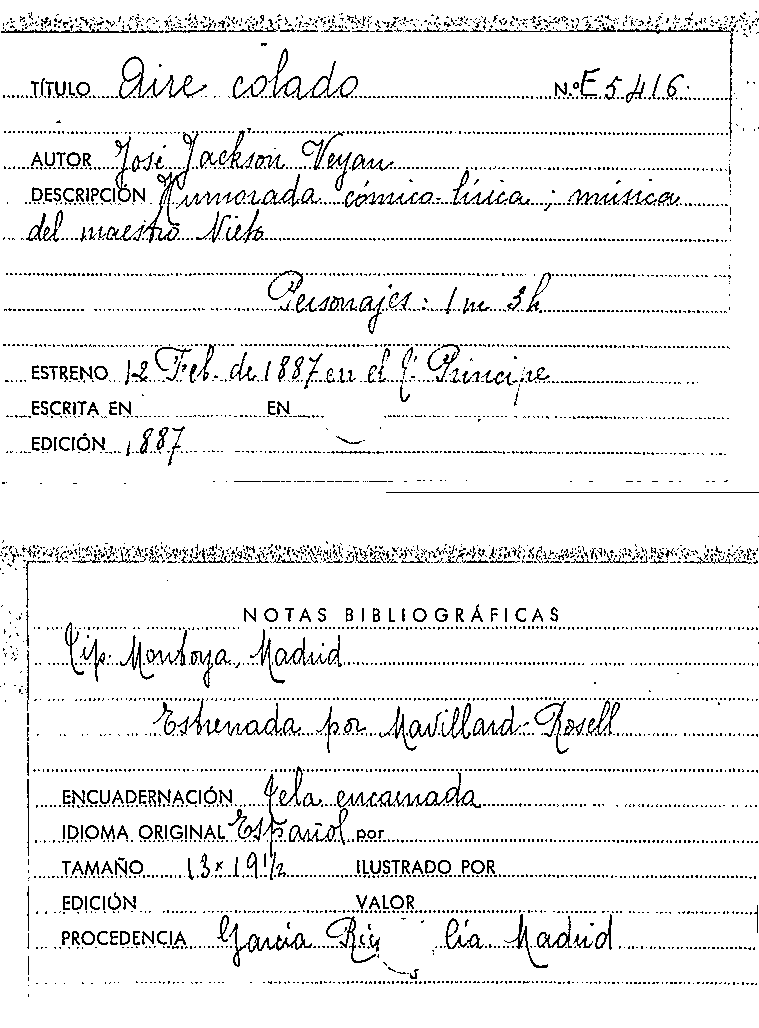 TÍTULO Aire colado N.º E 5416.
AUTOR José Jackson Veyan
DESCRIPCIÓN Humorada cómico-lírica; música
del maestro Nieto
Personajes: 1 m 3 h
ESTRENO 12 Feb. de 1887 en el T. Principe
ESCRITA EN EN
EDICIÓN 1887
NOTAS BIBLIOGRÁFICAS
Tip. Montoya, Madrid
Estrenada por Mavillard-Rosell
ENCUADERNACIÓN Tela encarnada
IDIOMA ORIGINAL Español por
TAMAÑO 13 x 19 1/2 ILUSTRADO POR
EDICIÓN VALOR
PROCEDENCIA García Rico Cía. Madrid